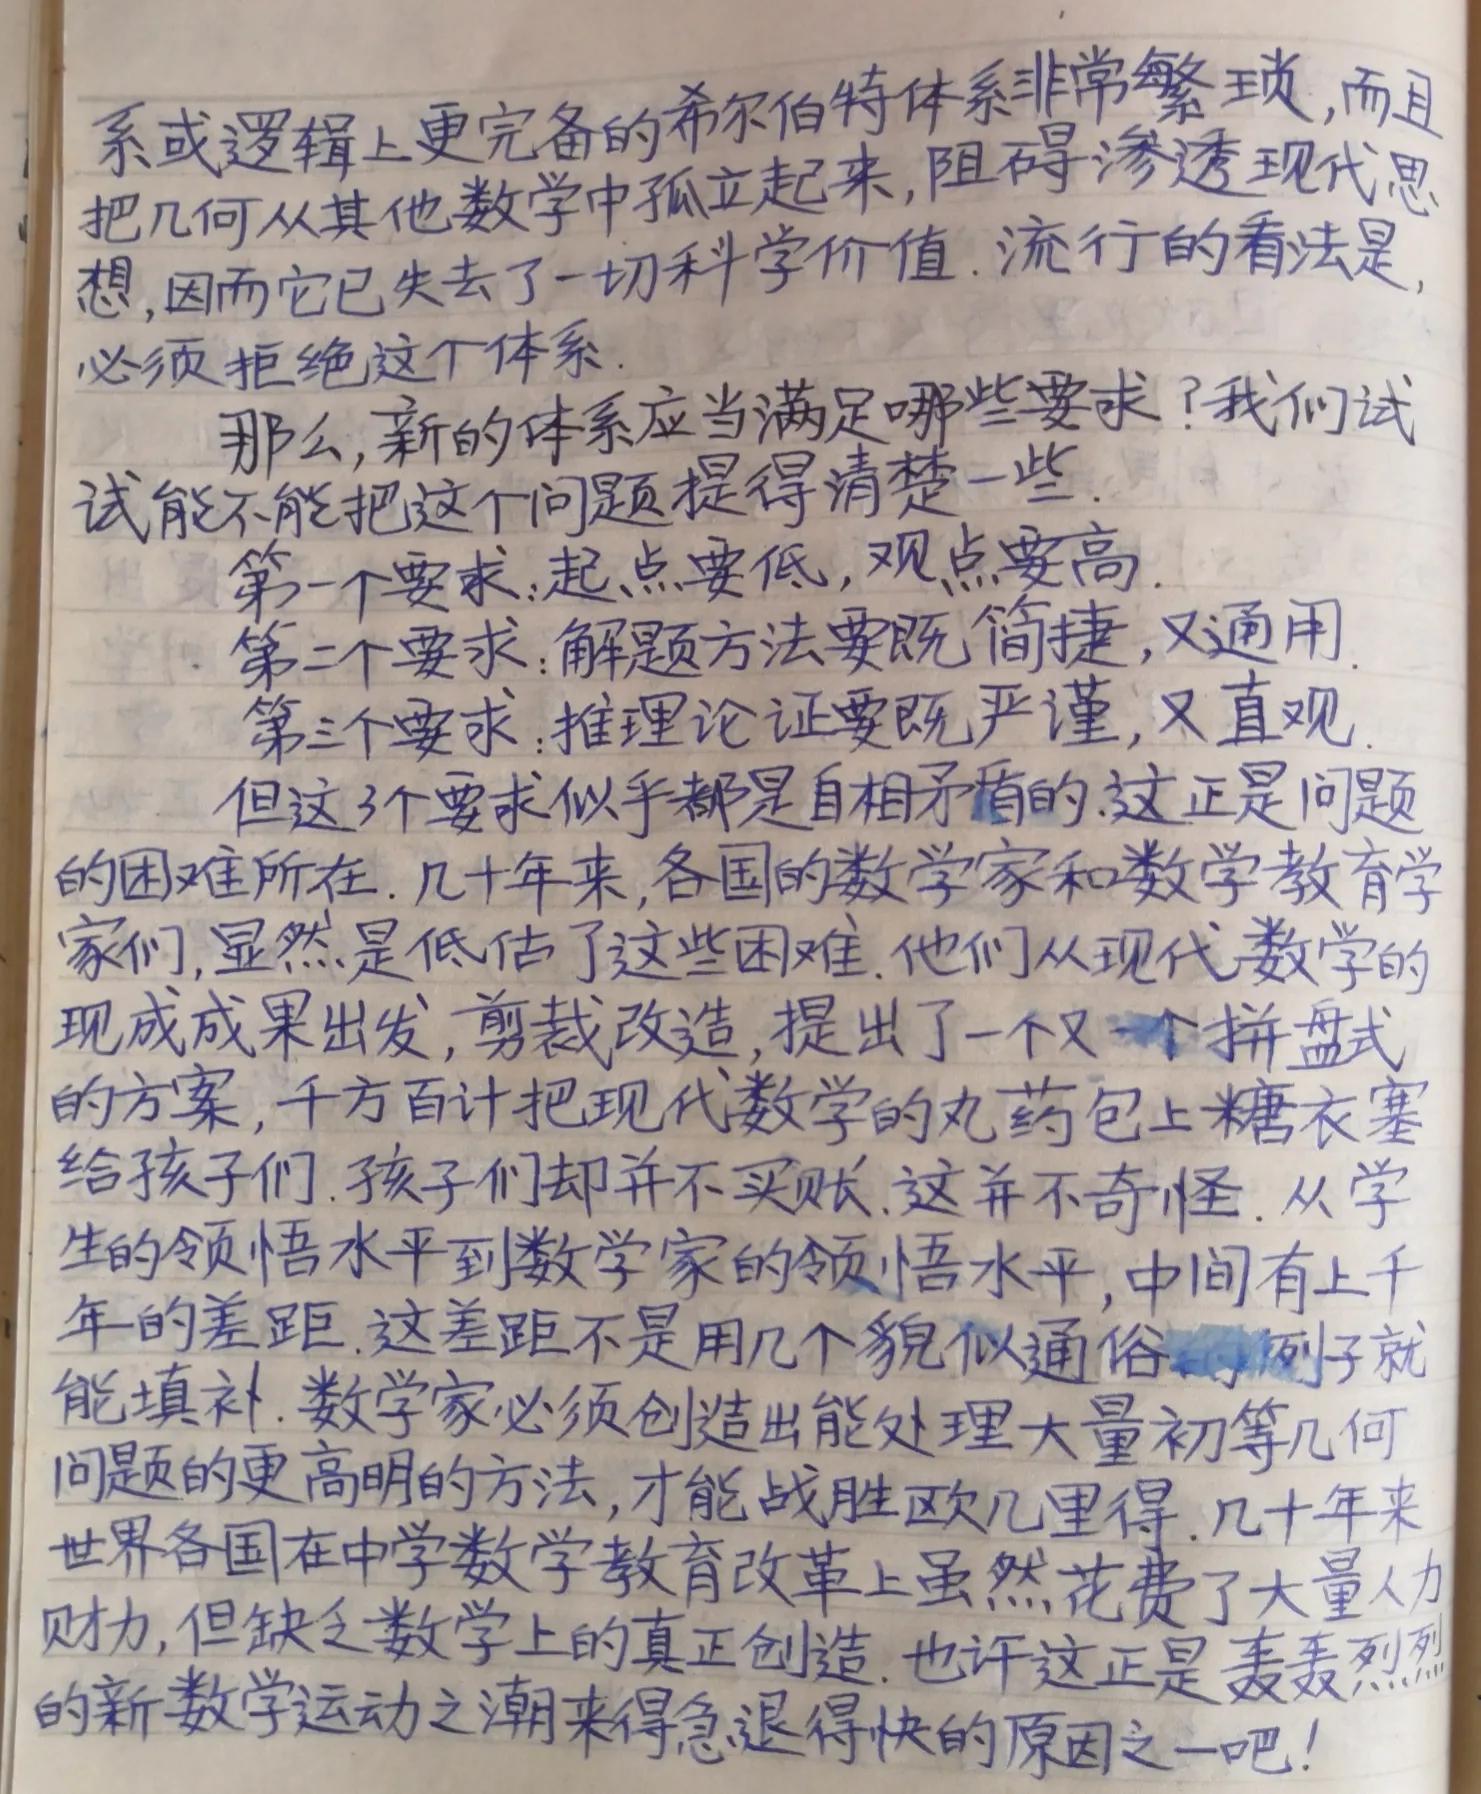 系或逻辑上更完备的希尔伯特体系非常繁琐,而且
把几何从其他数学中孤立起来,阻碍渗透现代思
想,因而它已失去了一切科学价值.流行的看法是,
必须拒绝这个体系.
那么,新的体系应当满足哪些要求?我们试
试能不能把这个问题提得清楚一些.
第一个要求:起点要低,观点要高.
第二个要求:解题方法要既简捷,又通用.
第三个要求:推理论证要既严谨,又直观.
但这3个要求似乎都是自相矛盾的.这正是问题
的困难所在.几十年来,各国的数学家和数学教育学
家们,显然是低估了这些困难.他们从现代数学的
现成成果出发,剪裁改造,提出了一个又一个拼盘式
的方案,千方百计把现代数学的丸药包上糖衣塞
给孩子们.孩子们却并不买账.这并不奇怪.从学
生的领悟水平到数学家的领悟水平,中间有上千
年的差距.这差距不是用几个貌似通俗的例子就
能填补.数学家必须创造出能处理大量初等几何
问题的更高明的方法,才能战胜欧几里得.几十年来
世界各国在中学数学教育改革上虽然花费了大量人力
财力,但缺乏数学上的真正创造.也许这正是轰轰烈烈
的新数学运动之潮来得急退得快的原因之一吧!